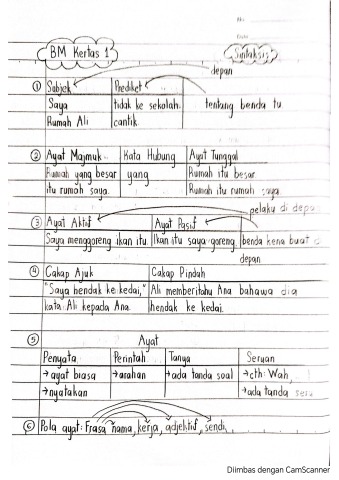 BM Kertas 1
Sintaksis
depan
① Subjek Prediket
Saya tidak ke sekolah. tentang benda tu
Rumah Ali cantik.
② Ayat Majmuk Kata Hubung Ayat Tunggal
Rumah yang besar yang Rumah itu besar.
itu rumah saya. Rumah itu rumah saya.
pelaku di depa
③ Ayat Aktif Ayat Pasif
Saya menggoreng ikan itu. Ikan itu saya goreng. benda kena buat d
depan
④ Cakap Ajuk Cakap Pindah
"Saya hendak ke kedai," Ali memberitahu Ana bahawa dia
kata Ali kepada Ana. hendak ke kedai.
⑤ Ayat
Penyata Perintah Tanya Seruan
→ayat biasa →arahan →ada tanda soal →cth: Wah,
→nyatakan →ada tanda seru
⑥ Pola ayat: Frasa nama, kerja, adjektif, sendi,
Diimbas dengan CamScanner